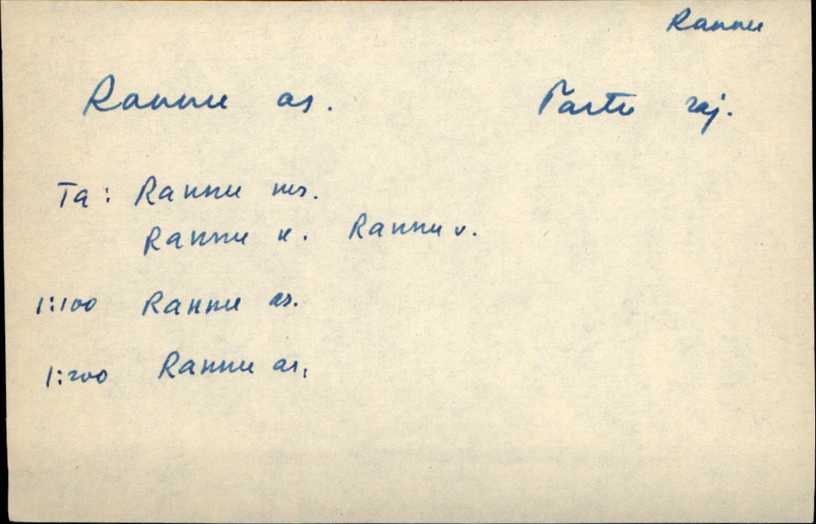 Rannu
Rannu as. Tartu raj.
Ta: Rannu ms.
Rannu k. Rannu v.
1:100 Rannu as.
1:200 Rannu as.